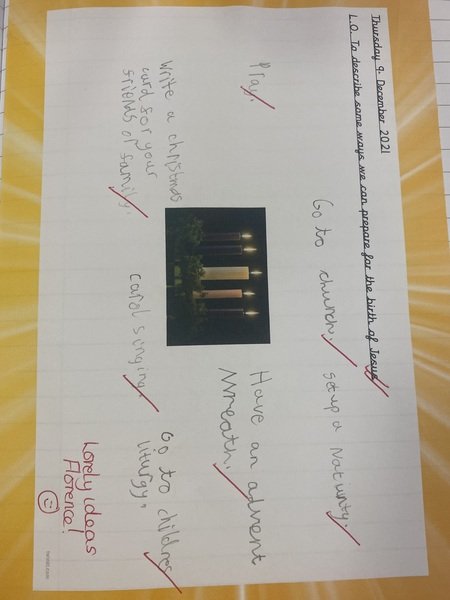 Thursday 9. December 2021
L.O. To describe some ways we can prepare for the birth of Jesus
Go to church.
set up a Nativity.
Pray.
Have an advent
Wreath.
Write a christmas
card for your
friends or family.
carol singing.
Go to childres
liturgy.
Lovely ideas
Florence!
twinkl.com